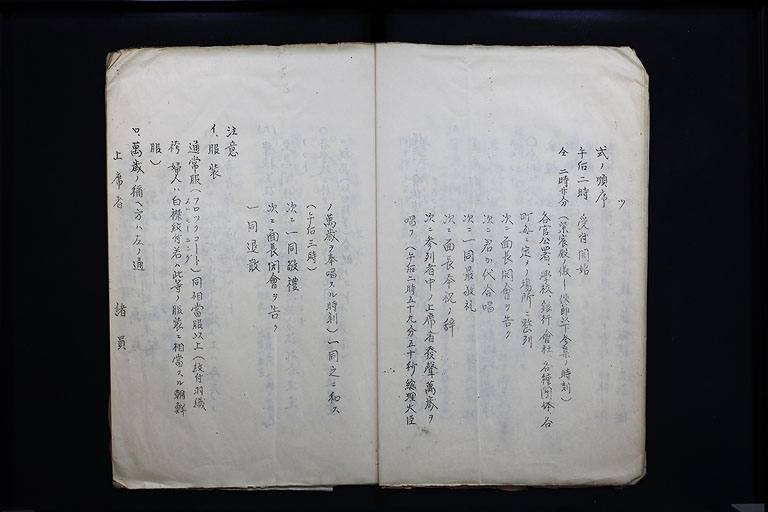 式ノ順序
午后二時　受付開始
仝　二時卅分（紫宸殿ノ儀　以下参集ノ時刻）
各官公署、學校、銀行會社、各種團体、各
町每ニ定ノ場所ニ整列
次ニ面長開會ヲ告ク
次ニ君が代合唱
次ニ一同最敬礼
次ニ面長奉祝ノ辞
次ニ参列者中ノ上席者發聲萬歲ヲ
唱フ（午后二時五十九分五十秒總理大臣
ノ萬歲ヲ奉唱スル時刻）一同之ニ和ス
（午后三時）
次ニ一同敬禮
次ニ面長閉會ヲ告ク
一同退散
注意
イ、服装
通常服（フロックコート　モーニング）同相當服以上（紋付羽織
袴、婦人ハ白襟紋付若ハ此等ノ服装ニ相當スル朝鮮
服）
ロ、萬歲ノ稱ヘ方ハ左ノ通
上席者　諸員